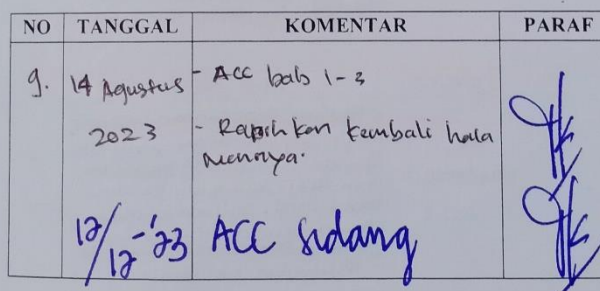 NO TANGGAL KOMENTAR PARAF
9. 14 Agustus - ACC bab 1-3
2023 - Rapihkan kembali hala
mennya.
12/12-'23 ACC sidang